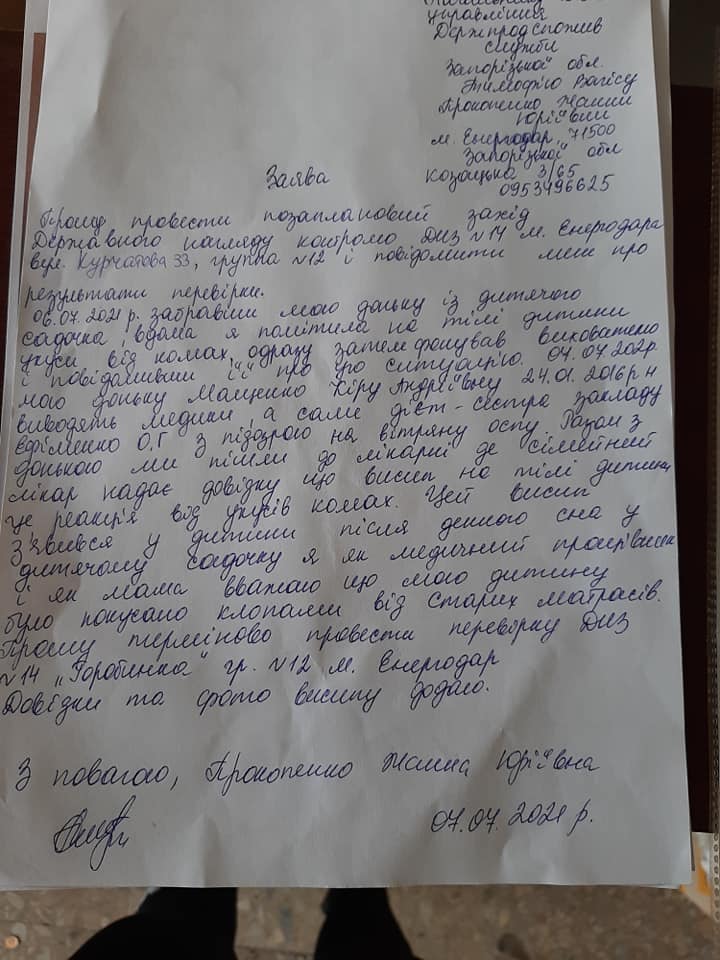 управління
Держпродспожив
служби
Запорізької обл.
Тимофію Вагісу
Прокопенко Жанни
Юріївни
м. Енергодар, 71500
Запорізької обл
Козацька 3/65
0953496625
Заява
Прошу провести позаплановий захід
Державного нагляду контролю ДНЗ №14 м. Енергодара
вул. Курчатова 33, группа №12 і повідомити мені про
результати перевірки.
06.07.2021 р. забравши мою доньку із дитячого
садочка, вдома я помітила на тілі дитини
укуси від комах, одразу зателефонував вихователю
і повідомивши її про цю ситуацію. 07.07.2021р.
мою доньку Маценко Кіру Андріївну 24.01.2016 р н
виводять медики, а саме дієт-сестра закладу
Єфіменко О.Г з підозрою на вітряну оспу. Разом з
донькою ми пішли до лікарні де сімейний
лікар надає довідку що висип на тілі дитини
це реакція від укусів комах. Цей висип
з'явився у дитини після денного сна у
дитячому садочку я як медичний працівник
і як мама вважаю що мою дитину
було покусано клопами від старих матрасів.
Прошу терміново провести перевірку ДНЗ
№14 „Горобинка" гр. №12 м. Енергодар
Довідки та фото висипу додаю.
З повагою, Прокопенко Жанна Юріївна
07.07.2021 р.